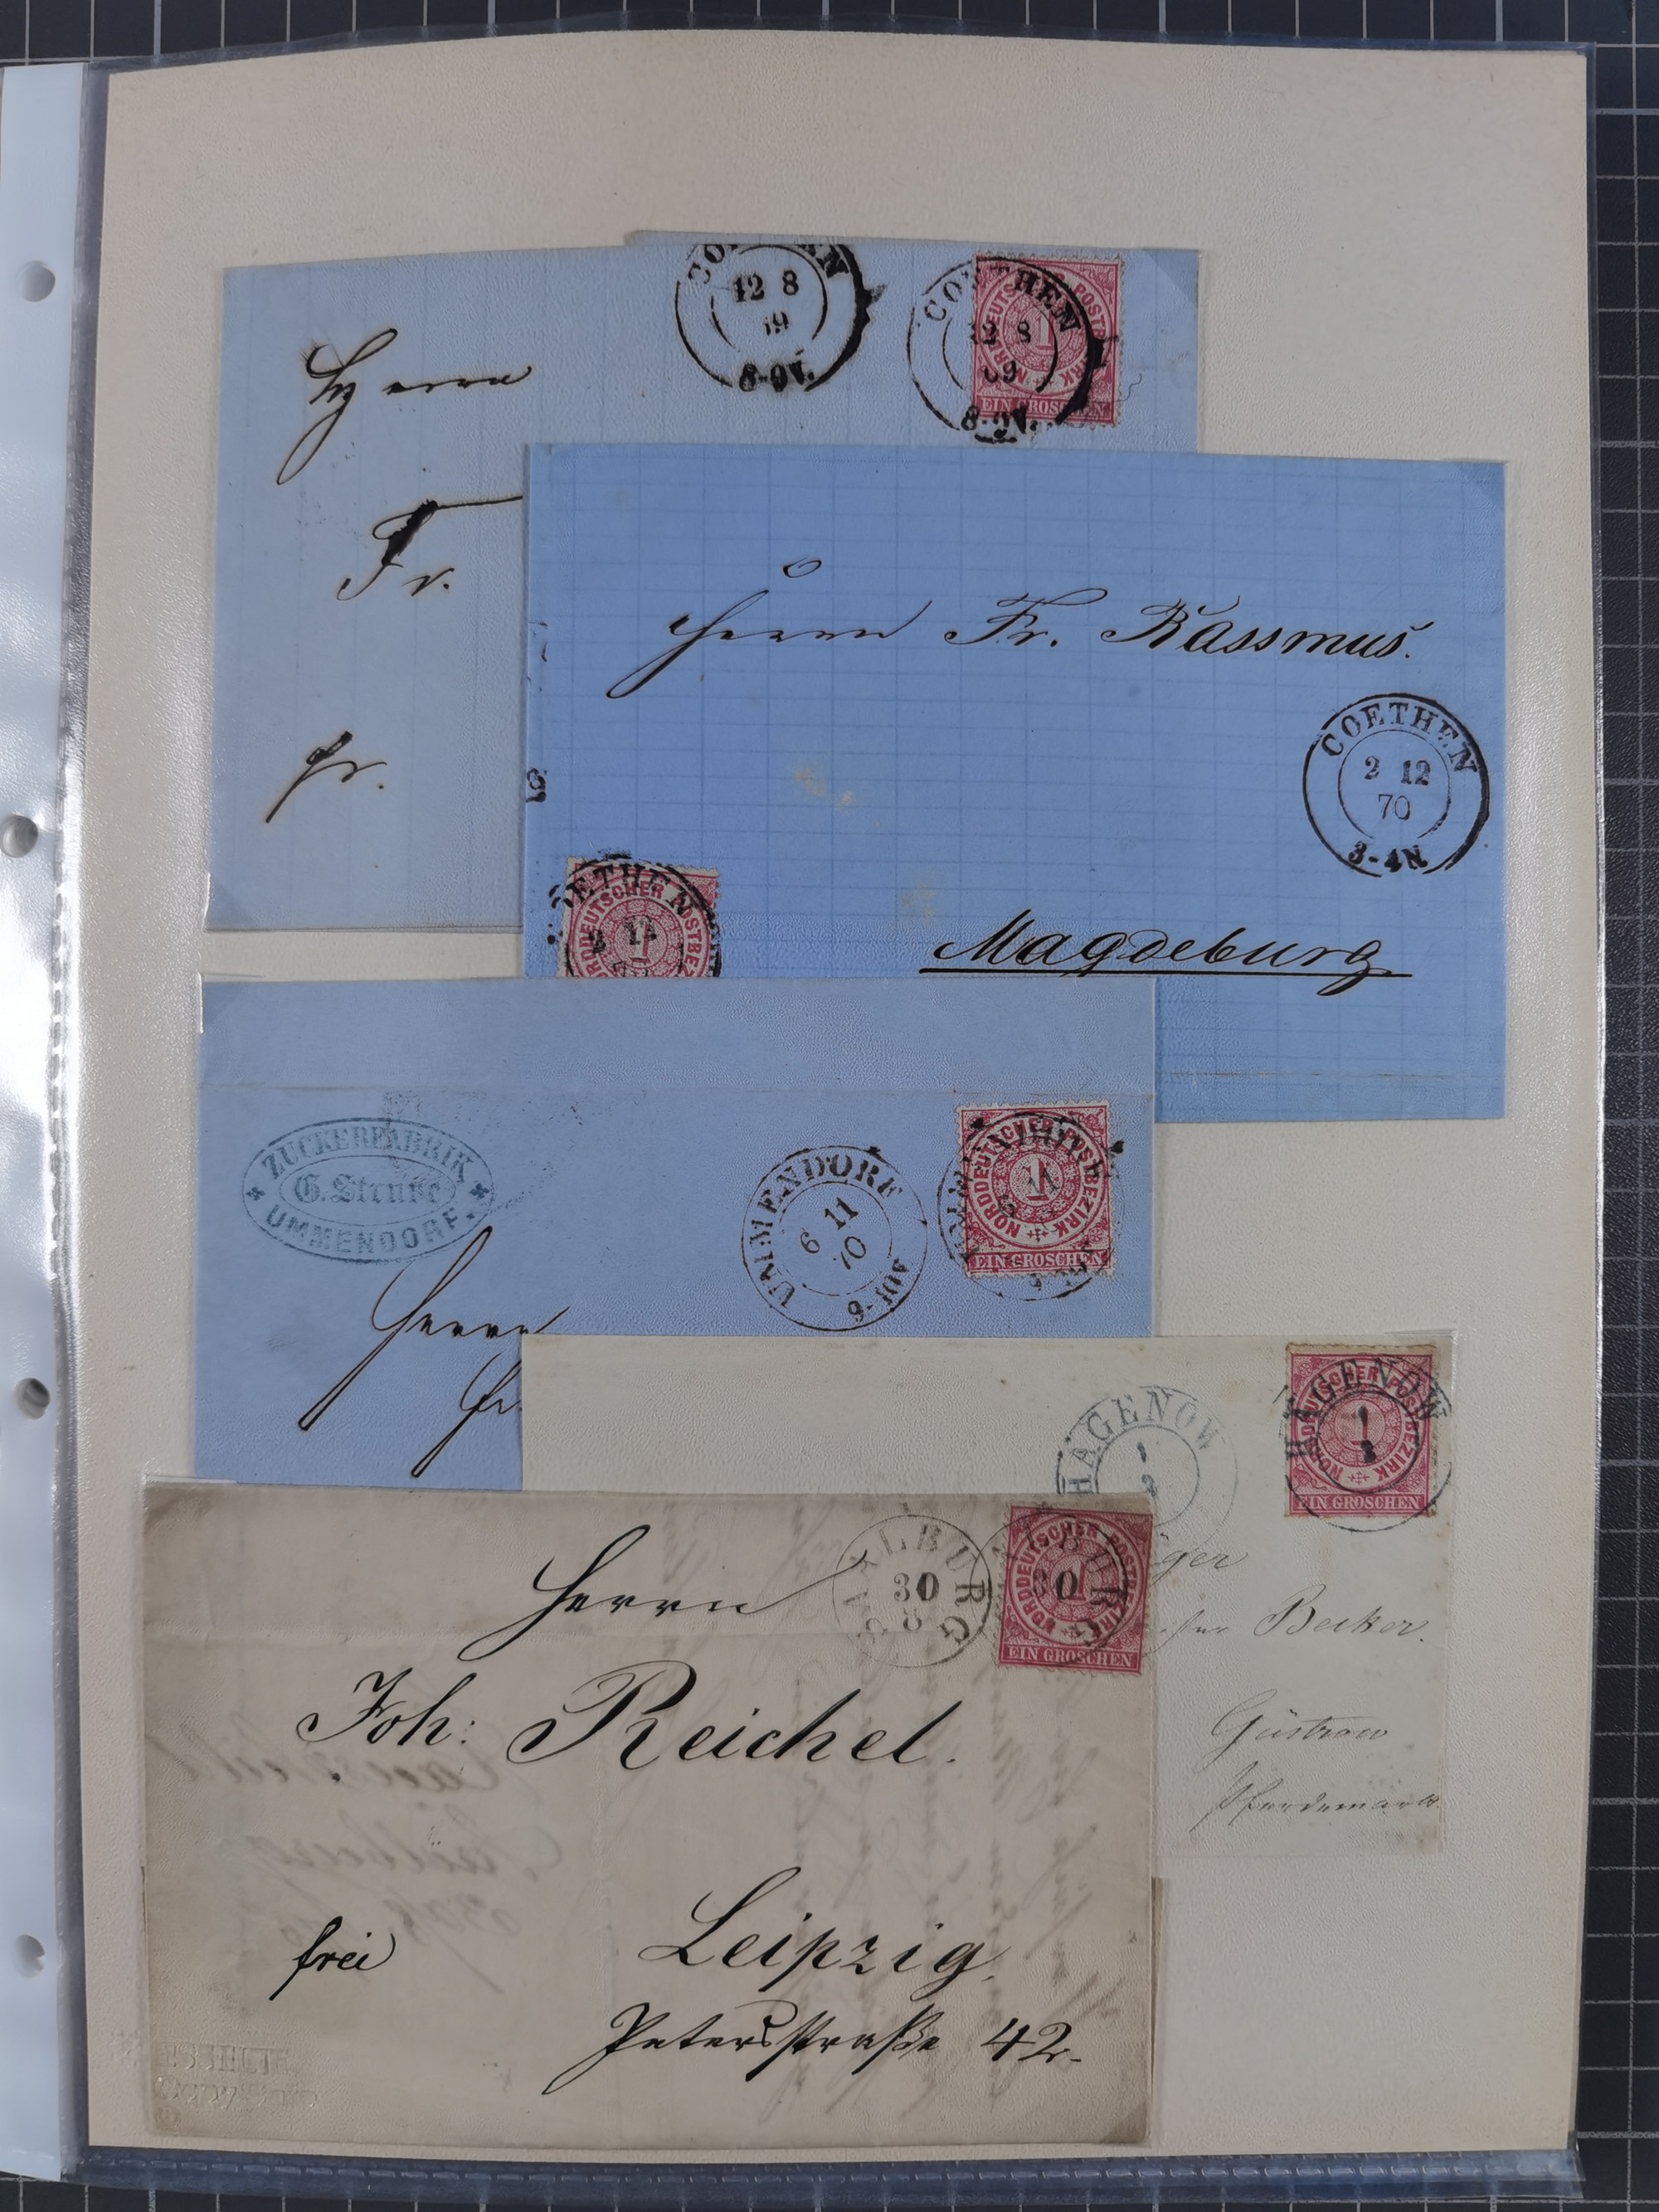 COETHEN
12 8
69
8-9V.
COETHEN
12 8
69
8-9V.
NORDDEUTSCHER POSTBEZIRK
1
EIN GROSCHEN
Herrn
Fr.
fr.
Herrn Fr. Rassmus.
COETHEN
2 12
70
3-4N
COETHEN
2 12
NORDDEUTSCHER POSTBEZ
1
Magdeburg
ZUCKERFABRIK
G. Strube
UMMENDORF.
UMMENDORF
6 11
70
UMMENDORF
6 11
NORDDEUTSCHER POSTBEZIRK
1
EIN GROSCHEN
Herrn
Fr.
HAGENOW
1
HAGENOW
1
NORDDEUTSCHER POSTBEZIRK
1
EIN GROSCHEN
ger
Becker.
Güstrow
Pferdemarkt
SAALBURG
30
8
SAALBURG
30
NORDDEUTSCHER POSTBEZIRK
1
EIN GROSCHEN
Herrn
Joh: Reichel.
frei
Leipzig.
Petersstraße 42.